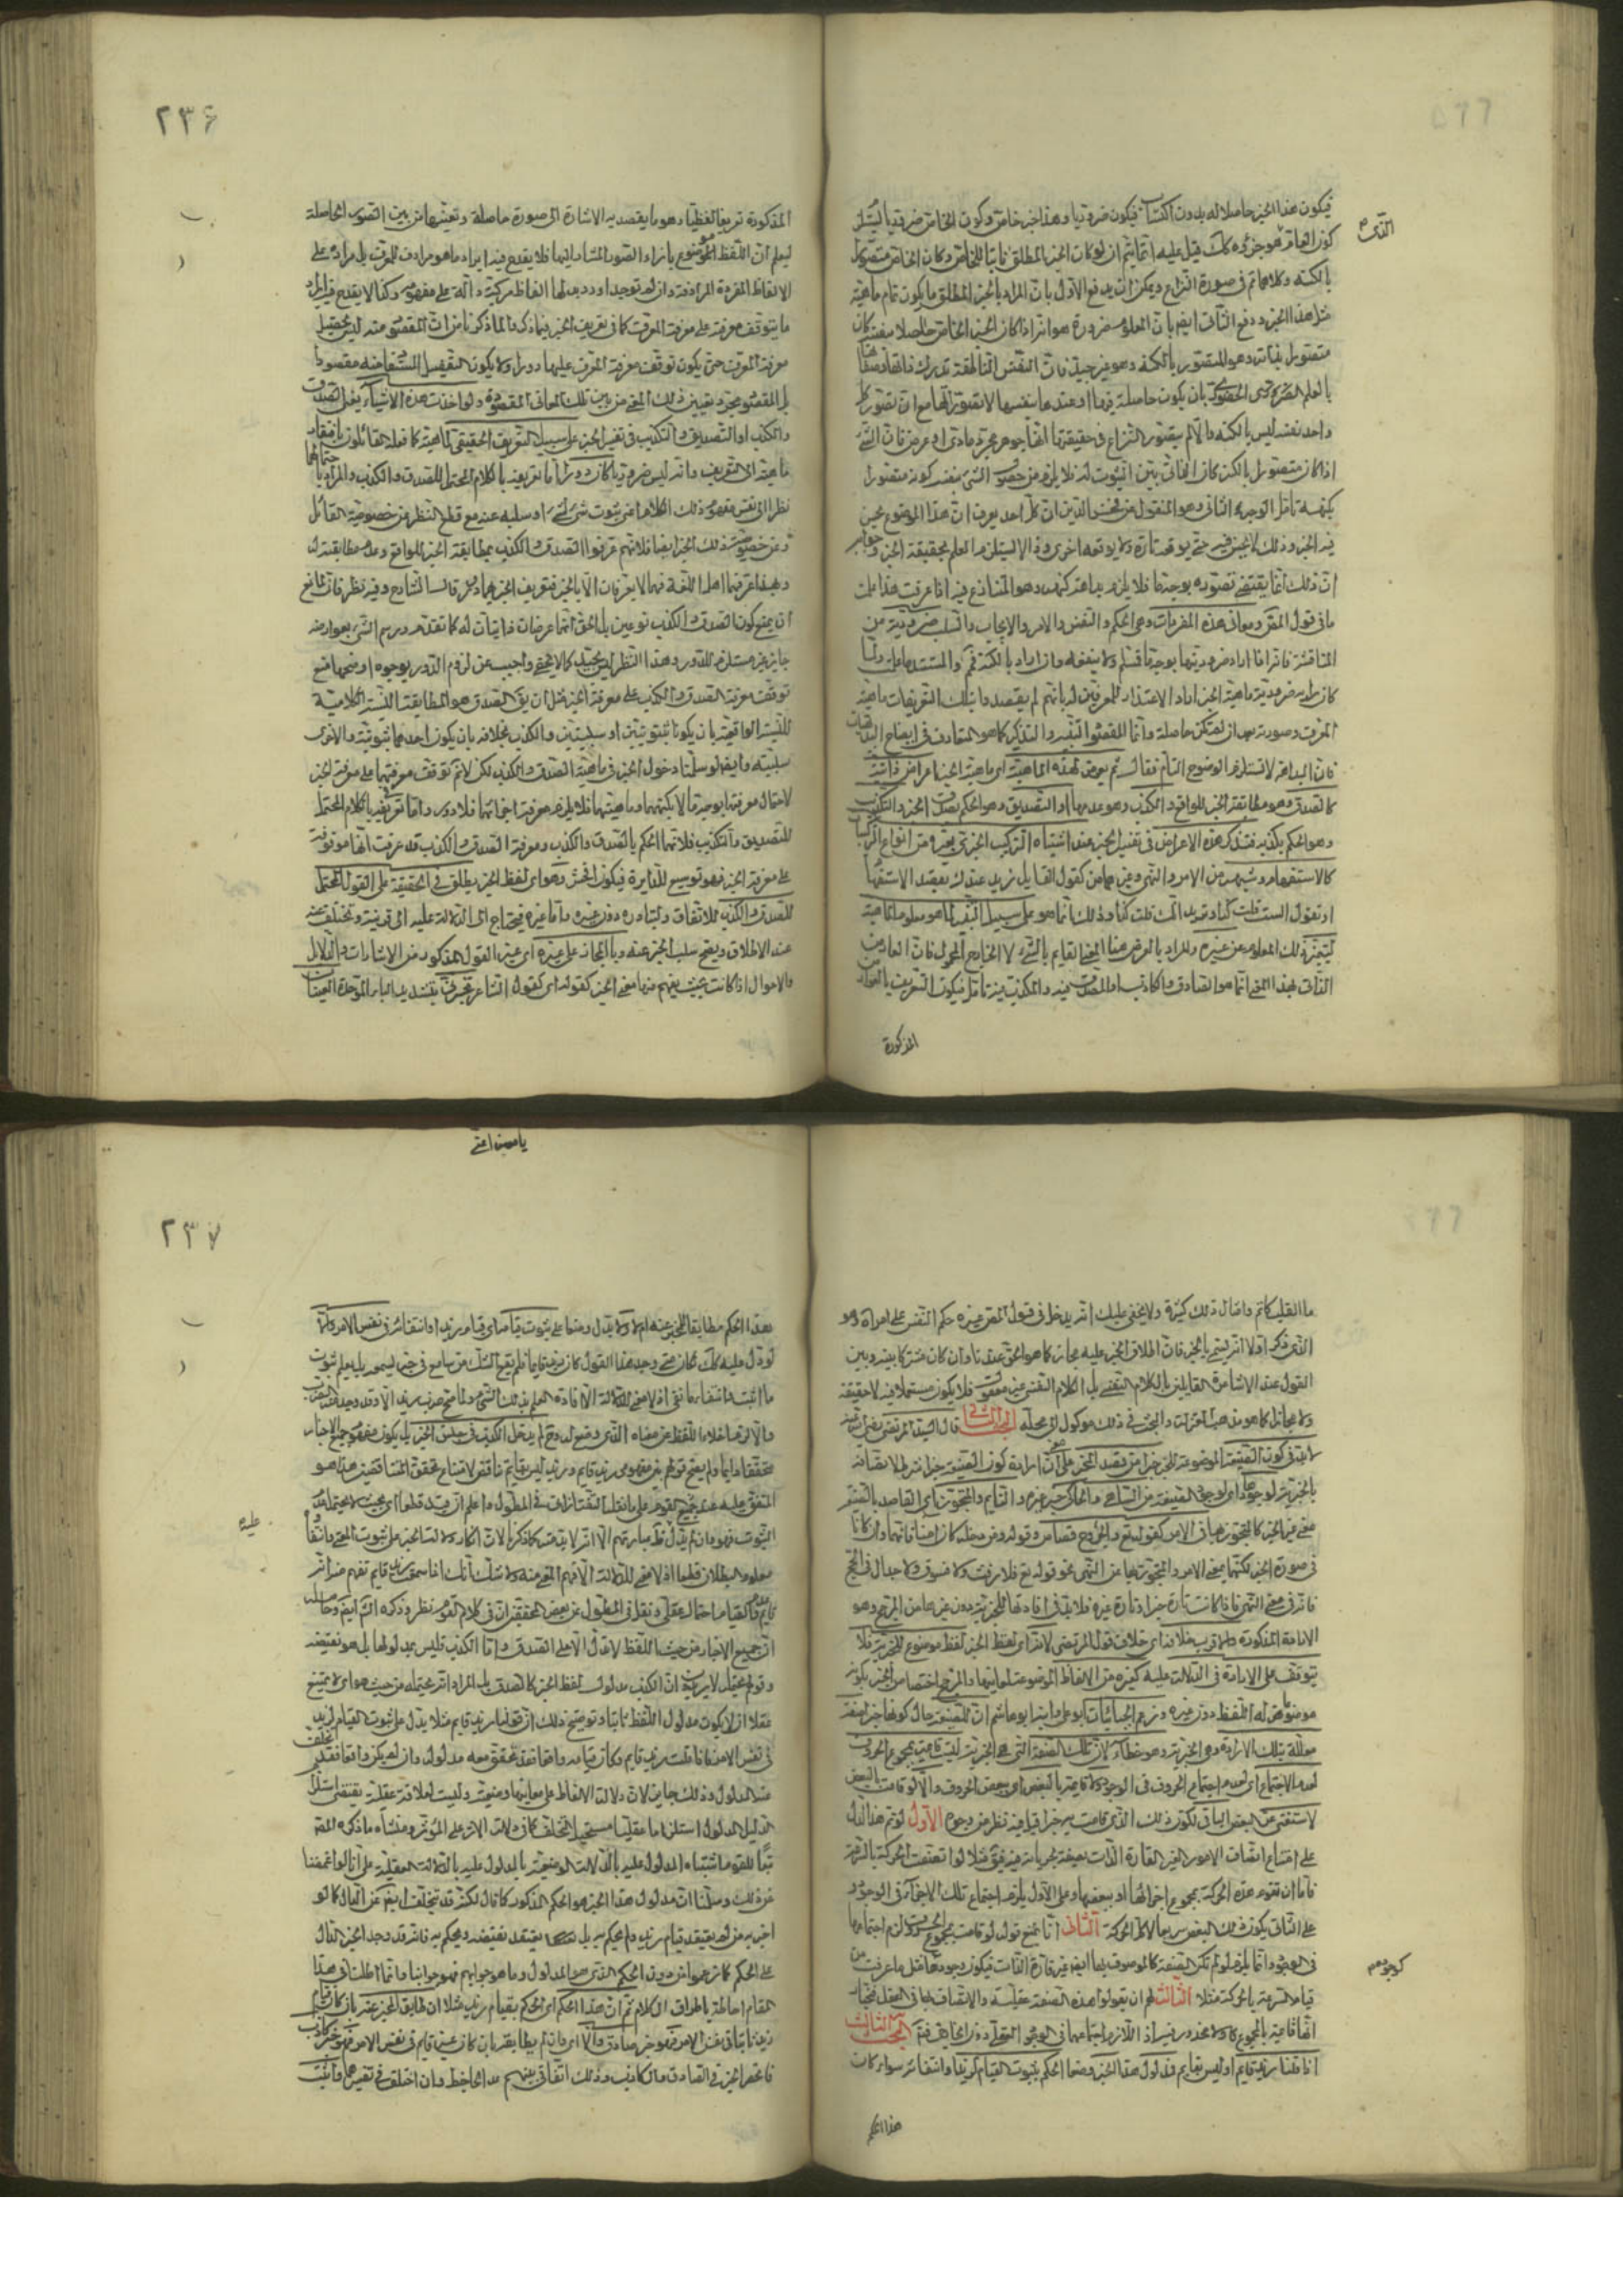 فيكون هذا الخبر حاصلا له بدون اكتساب فيكون ضروريا وهذا خبر خاص وكون الخاص ضروريا يستلزم
كون العام الذي هو جزؤه كذلك قيل عليه انما يتم ان لو كان الخبر المطلق ذاتيا للخاص وكان الخاص متصورا
بالكنه وكلاهما في صورة النزاع ويمكن ان يدفع الاول بان المراد بالخبر المطلق ما يكون تمام ماهية
مثل هذا الخبر ودفع الثاني ايضا بان المعلوم ضرورة هو
متصورا بذاته وهو المتصور بالكنه وهو غير جيد فان النفس الناطقة تدرك ذاتها
واحد نفسه ليس بالكنه والا لم يتصور النزاع في حقيقتها انها جوهر مجرد مادي او عرض فان الشيء
اذا كان متصورا بالكنه كان الذاتي بين الثبوت له فلا يلزم من حضور الشيء بنفسه كونه متصورا
بكنهه تامل الوجه الثاني وهو المنقول عن فخر الدين ان كل احد يعرف ان هذا الموضع يحسن
فيه الخبر وذلك لا يحسن فيه حتى يوقعه تارة ولا يوقعه اخرى وذا لا يستلزم العلم بحقيقة الخبر وجوابه
ان ذلك انما يقتضي تصوره بوجه ما فلا يلزم بداهة كنهه وهو المتنازع فيه اذا عرفت هذا علمت
ما في قول المص ومعاني هذه المفردات وهي الحكم والنفس والامر والايجاب والسلب ضرورية من
المناقشة فانه اذا اراد ضروريتها بوجه ما فمسلم ولا ينفعه وان اراد بالكنه فمم والمستند ما علمت ولما
كان مراده ضرورية ماهية الخبر اراد الاعتذار للمعرفين له بانهم لم يقصدوا بتلك التعريفات ماهية
المعرف وصورته بعد ان لم تكن حاصلة وانما المقصود التنبيه والتذكير كما هو المتعارف في ايضاح البديهيات
فان البداهة لا تستلزم الوضوح التام فقال ثم يعرض لهذه الماهية اي ماهية الخبر اعراض ذاتية
كالصدق وهو مطابقة الخبر للواقع والكذب وهو عدمها او التصديق وهو الحكم بصدق الخبر والتكذيب
وهو الحكم بكذبه فتذكر هذه الاعراض في تفسير الخبر عند اشتباه التركيب الخبري بغيره من انواع التركيبات
كالاستفهام وشبهه من الامر والنهي وغيرهما من كقول القايل زيد عندك بقصد الاستفهام
او تقول الست قلت كذا وتريد انك قلت كذا وذلك انما هو على سبيل التنبيه لما هو معلوم الماهية
ليتميز ذلك المعلوم عن غيره والمراد بالعرض هنا المعنى القايم بالشيء لا الخارج المحمول فان العارض
الذاتي بهذا المعنى انما هو الصادق والكاذب او المصدق فيه والمكذب فيه تامل فيكون التعريف بالعوارض
المذكورة
الذي
٢٣٦
المذكورة تعريفا لفظيا وهو ما يقصد به الاشارة الى صورة حاصلة وتعيينها من بين الصور الحاصلة
ليعلم ان اللفظ الموضوع بازاء الصور المشار اليها فلا يقدح فيه ايراد ما هو مرادف للمعرف بل مراده على
الالفاظ المفردة المرادفة وان لم توجد اورد بدلها الفاظ مركبة دالة على مفهومه وكذا لا يقدح فيه ايراد
ما يتوقف معرفته على معرفة المعرف كما في تعريف الخبر فيما ذكر والما ذكرنا من ان المقصود منه ليس تحصيل
معرفة المعرف حتى يكون توقف معرفة المعرف عليها دورا ولا يكون التفصيل المستفاد منه مقصودا
بل المقصود مجرد تعيين ذلك المعنى من بين تلك المعاني المقصودة ولو اخذت هذه الاشياء يعني الصدق
والكذب او التصديق والتكذيب في تفسير الخبر على سبيل التعريف الحقيقي لماهيته كما فعله القائلون بافتقار
ماهيته الى التعريف وانه ليس ضروريا كان دورا اما تعريفه بالكلام المحتمل للصدق والكذب والمراد باحتمالهما
نظرا الى نفس مفهوم ذلك الكلام اعني ثبوت شيء لشيء او سلبه عنه مع قطع النظر عن خصوصية القائل
وعن خصوصية ذلك الخبر ايضا فلانهم عرفوا الصدق والكذب بمطابقة الخبر للواقع وعدم مطابقته له
وبهذا عرفهما اهل اللغة فهما لا يعرفان الا بالخبر فتعريف الخبر بهما دور قال الشارح وفيه نظر فان لمانع
ان يمنع كون الصدق والكذب نوعين بل الحق انهما عرضان ذاتيان له كما تقدم ورسم الشيء بعوارضه
جايز غير مستلزم للدور وهذا النظر ليس بجيد كما لا يخفى واجيب عن لزوم الدور بوجوه اوضحها منع
توقف معرفة الصدق والكذب على معرفة الخبر مثل ان يق الصدق هو المطابقة النسبة الكلامية
للنسبة الواقعية بان يكونا ثبوتيتين او سلبيتين والكذب بخلافه بان يكون احدهما ثبوتية والاخرى
سلبية وايضا لو سلمنا دخول الخبر في ماهية الصدق والكذب لكن لا نم توقف معرفتهما على معرفة الخبر
لاحتمال معرفتها بوجه ما لا بكنههما وماهيتهما فلا يلزم معرفة اجزائهما فلا دور واما تعريفه بالكلام المحتمل
للتصديق والتكذيب فلانهما الحكم بالصدق والكذب ومعرفة الصدق والكذب قد عرفت انها موقوفة
على معرفة الخبر فهو توسيع للدايرة فيكون افحش وهو اي لفظ الخبر يطلق في الحقيقة على القول المحتمل
للصدق والكذب للاتفاق ولتبادره دون غيره واما غيره فيحتاج الى الدلالة عليه الى قرينة وتختلف عنه
عند الاطلاق ويصح سلب الخبر عنه وبالمجاز على غيره اي غير القول المذكور من الاشارات والدلائل
والاحوال اذا كانت بحيث يفهم منها معنى الخبر كقوله اي كقول الشاعر تخبرني بتشديد الباء الموحدة العينان
ما القلب كاتم وامثال ذلك كثيرة ولا يخفى عليك انه يدخل في قول المص غيره حكم النفس على امر اه وهو
الذي ذكر اولا انه يسمى بالخبر فان اطلاق الخبر عليه مجاز كما هو الحق عندنا وان كان مشتركا بينه وبين
القول عند الاشاعرة القايلين بالكلام النفسي بل الكلام النفسي غير معقول فلا يكون مستعملا فيه لا حقيقة
ولا مجازا كما هو مذهب المعتزلة والبحث في ذلك موكول الى محله البحث الثاني قال السيد المرتضى رضي الله عنه
لا بد في كون الصيغة الموضوعة للخبر خبرا من قصد المخبر
بالخبرية لوجودها اي لوجود الصيغة من الساهي والحاكي خبر غيره والنايم والمتجوز بها اي القاصد بالصيغة
معنى غير الخبر كالمتجوز بها في الامر كقوله تع والجروح قصاص وقوله ومن دخله كان امنا فانهما وان كانا
في صورة الخبر لكنهما بمعنى الامر والمتجوز بها عن النهي نحو قوله تع فلا رفث ولا فسوق ولا جدال في الحج
فانه في معنى النهي فاذا كانت تارة خبرا وتارة غيره فلا بد في افادتها للخبرية دون غيرها من المرجح وهو
الارادة المذكورة والاقرب خلافه اي خلاف قول المرتضى لانه اي لفظ الخبر لفظ موضوع للخبرية فلا
يتوقف على الارادة في الدلالة عليه كغيره من الالفاظ الموضوعة لمعانيها والمرجح اختصاص الخبر بكونه
موضوعا له اللفظ دون غيره وزعم الجبائيان ابو علي وابنه ابو هاشم ان للصيغة حال كونها خبرا صفة
معللة بتلك الارادة وهي الخبرية وهو خطأ لان تلك الصفة التي هي الخبرية ليست قائمة بمجموع الحروف
لعدم الاجتماع اي لعدم اجتماع الحروف في الوجود ولا قايمة بالبعض اي ببعض الحروف والا لو قامت بالبعض
لاستغنى عن البعض الباقي لكون ذلك الذي قامت به خبرا قيل فيه نظر من وجوه الاول لو تم هذا لدل
على امتناع اتصاف الامور الغير القارة الذات بصفة لجريانه فيه فيق مثلا لو اتصفت الحركة بالسرعة
فاما ان تقوم هذه الحركة بمجموع اجزائها او ببعضها وعلى الاول يلزم اجتماع تلك الاجزاء في الوجود
على الثاني يكون ذلك البعض سريعا لا كل الحركة الثاني انا نمنع قوله لو قامت بمجموع الحروف لزم اجتماعها
في الوجود انما يلزم لو لم تكن الصفة كالموصوف فيها ايضا غير قارة الذات فيكون وجودها مثل ما عرفت من
قيام السرعة بالحركة مثلا الثالث لهم ان يقولوا هذه الصفة عقلية والاتصاف بها في العقل فنختار
انها قايمة بالمجموع ولا محذور فيه اذ اللازم اجتماعها في الوجود العقلي دون الخارجي فتم البحث الثالث
اذا قلنا زيد قايم او ليس بقايم فمدلول هذا الخبر وضعا الحكم بثبوت القيام لزيد او انتفائه سواء كان
هذا الحكم
كوجودهم
يا معين اعني
٢٣٧
هذا الحكم مطابقا للمخبر عنه ام لا ولا يدل وضعا على ثبوت قيامه اي قيام زيد او انتفائه في نفس الامر ولانه
لو دل عليه لكان متى وجد هذا القول كان زيد قايما فلم يقع الشك من سامع في خبر يسمعه بل يعلم ثبوت
ما اثبت وانتفاء ما نفي اذ لا معنى للدلالة الا افادة العلم بذلك الشيء ولما صح ضرب زيد الا وقد وجد منه الضرب
والا لزم اخلاء اللفظ عن معناه الذي وضع له وح لم يدخل الكذب في جنس الخبر بل يكون مفهوم جميع الاخبار
متحققا دايما ولم يصح قولهم بين مفهومي زيد قايم وزيد ليس بقايم تناقض لامتناع تحقق المتناقضين هذا هو
المتفق عليه عند جميع القوم على ما نقله التفتازاني في المطول واعلم
معلوم البطلان قطعا اذ لا معنى للدلالة الا فهم المعنى منه ولا شك انك اذا سمعت زيد قايم تفهم منه انه
قايم وعدم القيام احتمال عقلي ونقل في المطول عن بعض المحققين ان في كلام القوم نظر وذكره الشم ايضا وحاصله
ان جميع الاخبار من حيث اللفظ لا تدل الا على الصدق واما الكذب فليس بمدلولها بل هو نقيضه
وقولهم يحتمل لا يريدون ان الكذب مدلول لفظ الخبر كالصدق بل المراد انه يحتمله من حيث هو اي لا يمتنع
عقلا ان لا يكون مدلول اللفظ ثابتا وتوضيح ذلك ان قولنا زيد قايم مثلا يدل على ثبوت القيام لزيد
في نفس الامر فاذا قلت زيد قايم وكان قيامه واقعا فقد تحقق معه مدلوله وان لم يكن واقعا فقد تخلف
عنه المدلول وذلك جايز لان دلالة الالفاظ على معانيها وضعية وليست لعلاقة عقلية يقتضي استلزام
الدليل المدلول استلزاما عقليا مستحيل التخلف كما في دلالة الاثر على المؤثر ومنشاء ما ذكره المص
تبعا للقوم اشتباه المدلول عليه بالدلالة الوضعية بالمدلول عليه بالدلالة العقلية على انا لو اغمضنا
عن ذلك وسلمنا ان مدلول هذا الخبر هو الحكم المذكور كما قال لكنه قد يتخلف ايضا عن الدال كما لو
اخبر به من لم يعتقد قيام زيد ولم يحكم به بل يعتقد نقيضه ويحكم به فانه قد وجد الخبر الدال
على الحكم كما زعموا من دون الحكم الذي هو المدلول وما هو جوابهم فهو جوابنا وانما اطلنا في هذا
المقام احاطة باطراف الكلام ثم ان هذا الحكم اي الحكم بقيام زيد مثلا ان طابق المخبر عنه بان كان قيام
زيد ثابتا في نفس الامر فهو خبر صادق والا اي وان لم يطابقه بان كان غير قايم في نفس الامر فهو خبر كاذب
فانحصر الخبر في الصادق والكاذب وذلك اتفاقي بينهم عدا الجاحظ وان اختلف في تفسيرهما واثبت
عليه